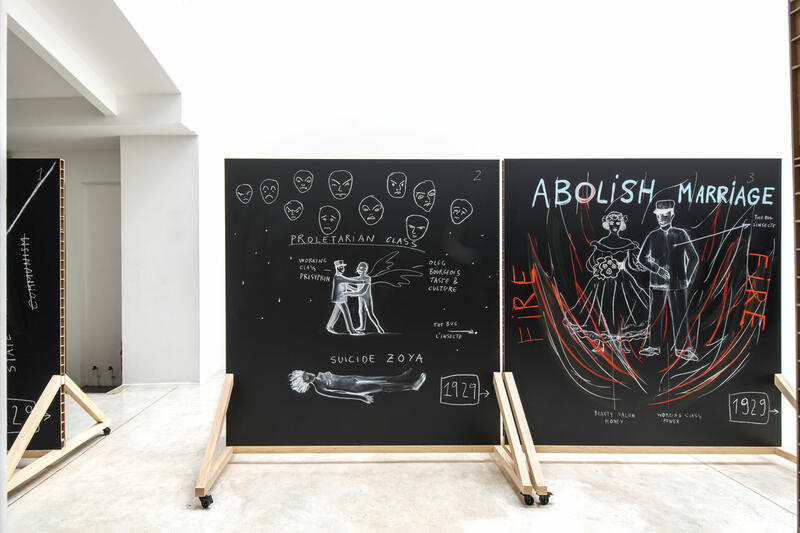 1
STATE
29
2
PROLETARIAN CLASS
WORKING
CLASS
PRISYPKIN
OLEG
BOURGEOIS
TASTE &
CULTURE
THE BUG
L'INSECTE
SUICIDE ZOYA
1929
3
ABOLISH MARRIAGE
THE BUG
L'INSECTE
FIRE
FIRE
BEAUTY SALON
MONEY
WORKING CLASS
POWER
1929